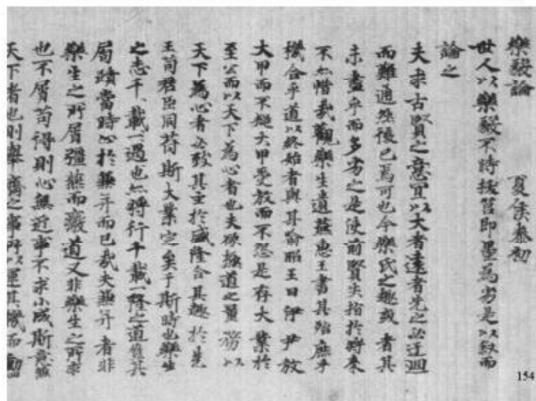 樂毅論 夏侯泰初
世人以樂毅不時拔莒即墨為劣是以叙而
論之
夫求古賢之意宜以大者遠者先之必迂迴
而難通然後已焉可也今樂氏之趣或者其
未盡乎而多劣之是使前賢失指於將来
不亦惜哉觀樂生遺燕惠王書其殆庶乎
機合乎道以終始者與其喻昭王曰伊尹放
大甲而不疑大甲受放而不怨是存大業於
至公而以天下為心者也夫欲極道之量務以
天下為心者必致其主於盛隆合其趣於先
王苟君臣同符斯大業定矣于斯時也樂生
之志千載一遇也亦將行千載一隆之道豈其
局蹟當時心於兼并而已哉夫兼并者非
樂生之所屑彊燕而廢道又非樂生之所求
也不屑苟得則心無近事不求小成斯意兼
天下者也則舉齊之事所以運其機而動
154